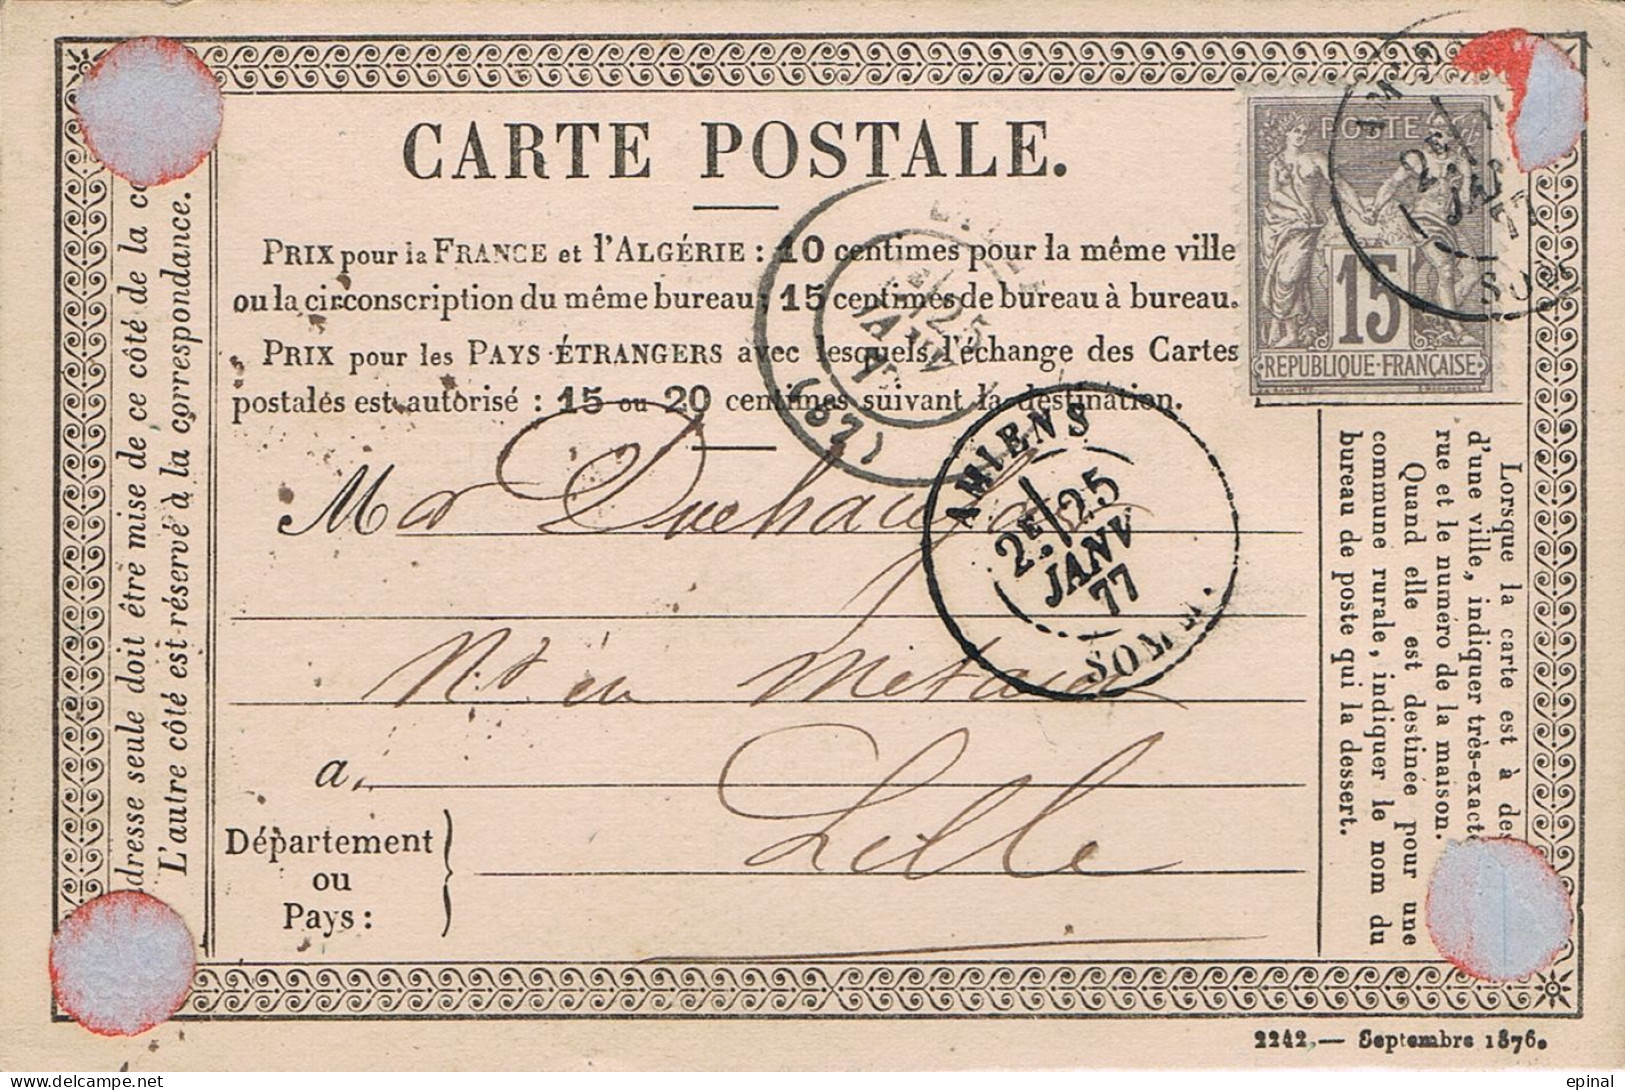 CARTE POSTALE.
PRIX pour la FRANCE et l'ALGÉRIE : 10 centimes pour la même ville
ou la circonscription du même bureau : 15 centimes de bureau à bureau.
PRIX pour les PAYS ÉTRANGERS avec lesquels l'échange des Cartes
postales est autorisé : 15 ou 20 centimes suivant la destination.
POSTE
15
REPUBLIQUE-FRANÇAISE
2E
JANV
SOM
2E/25
JANV
(57)
AMIENS
2E/25
JANV
77
SOMME.
Mr
Nt en Métaux
a
Lille
Département
ou
Pays :
dresse seule doit être mise de ce côté de la c
L'autre côté est réservé à la correspondance.
Lorsque la carte est à des
d'une ville, indiquer très-exact
rue et le numéro de la maison.
Quand elle est destinée pour une
commune rurale, indiquer le nom du
bureau de poste qui la dessert.
2242.— Septembre 1876.
delcampe.net
epinal